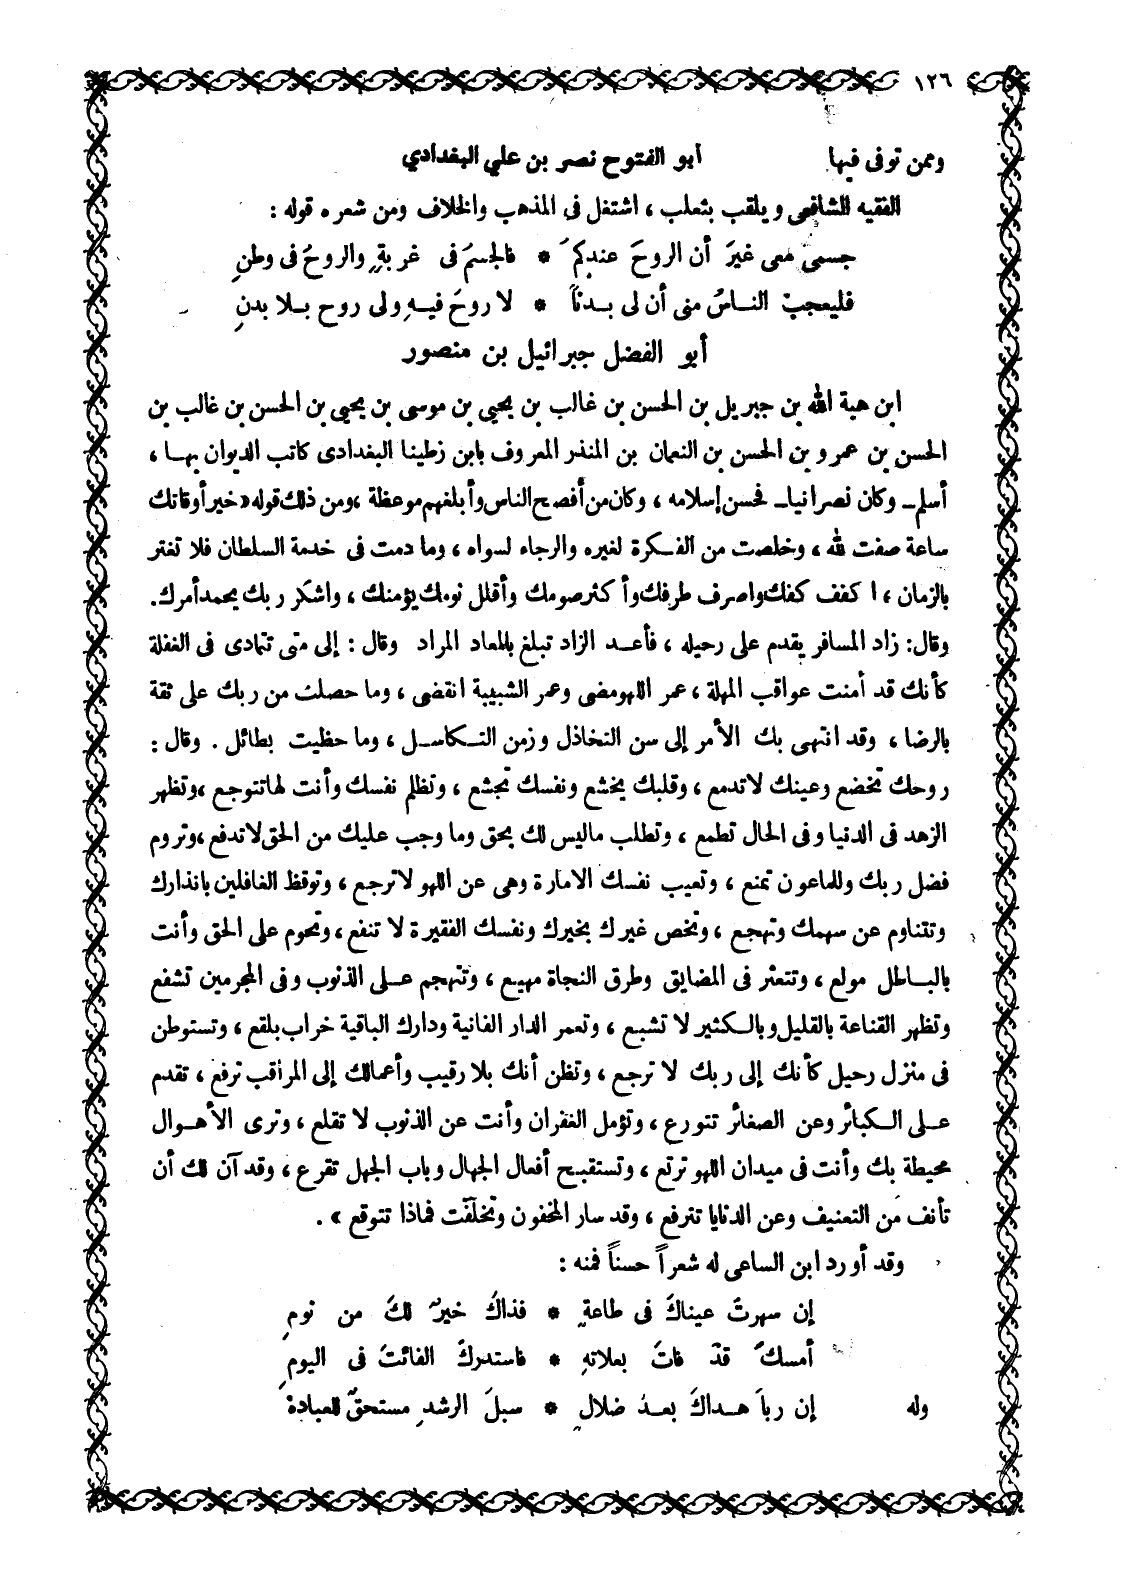 ١٢٦
وممن توفى فيها أبو الفتوح نصر بن علي البغدادي
الفقيه الشافعى ويلقب بثعلب ، اشتغل فى المذهب والخلاف ومن شعره قوله :
جسمى معى غيرَ أن الروحَ عندكمَ * فالجسمُ فى غربةٍ والروحُ فى وطنِ
فليعجبْ الناسُ منى أن لى بدناً * لا روحَ فيهِ ولى روح بلا بدنِ
أبو الفضل جبرائيل بن منصور
ابن هبة الله بن جبريل بن الحسن بن غالب بن يحيى بن موسى بن يحيى بن الحسن بن غالب بن
الحسن بن عمرو بن الحسن بن النعمان بن المنذر المعروف بابن زطينا البغدادى كاتب الديوان بها ،
أسلم ـ وكان نصرانيا ـ فحسن إسلامه ، وكان من أفصح الناس وأبلغهم موعظة ، ومن ذلك قوله « خير أوقاتك
ساعة صفت لله ، وخلصت من الفكرة لغيره والرجاء لسواه ، وما دمت فى خدمة السلطان فلا تغتر
بالزمان ، اكفف كفك واصرف طرفك وأكثر صومك وأقلل نومك يؤمنك ، واشكر ربك يحمد أمرك.
وقال: زاد المسافر يقدم على رحيله ، فأعد الزاد تبلغ بالمعاد المراد وقال : إلى متى تتمادى فى الغفلة
كأنك قد أمنت عواقب المهلة ، عمر اللهو مضى وعمر الشبيبة انقضى ، وما حصلت من ربك على ثقة
بالرضا ، وقد انتهى بك الأمر إلى سن التخاذل وزمن التكاسل ، وما حظيت بطائل . وقال :
روحك تخضع وعينك لا تدمع ، وقلبك يخشع ونفسك تجشع ، وتظلم نفسك وأنت لها تتوجع ، وتظهر
الزهد فى الدنيا وفى الحال تطمع ، وتطلب ما ليس لك بحق وما وجب عليك من الحق لا تدفع ، وتروم
فضل ربك وللماعون تمنع ، وتعيب نفسك الامارة وهى عن اللهو لا ترجع ، وتوقظ الغافلين بانذارك
وتتناوم عن سهمك وتهجع ، وتخص غيرك بخيرك ونفسك الفقيرة لا تنفع ، وتحوم على الحق وأنت
بالباطل مولع ، وتتعثر فى المضايق وطرق النجاة مهيع ، وتتهجم على الذنوب وفى المجرمين تشفع
وتظهر القناعة بالقليل وبالكثير لا تشبع ، وتعمر الدار الفانية ودارك الباقية خراب بلقع ، وتستوطن
فى منزل رحيل كأنك إلى ربك لا ترجع ، وتظن أنك بلا رقيب وأعمالك إلى المراقب ترفع ، تقدم
على الكبائر وعن الصغائر تتورع ، وتؤمل الغفران وأنت عن الذنوب لا تقلع ، وترى الأهوال
محيطة بك وأنت فى ميدان اللهو ترتع ، وتستقبح أفعال الجهال وباب الجهل تقرع ، وقد آن لك أن
تأنف من التعنيف وعن الدنايا تترفع ، وقد سار المخفون وتخلفت فماذا تتوقع » .
وقد أورد ابن الساعى له شعراً حسناً فمنه :
إن سهرتَ عيناكَ فى طاعةٍ * فذاكَ خيرٌ لكَ من نومِ
أمسكَ قدْ فاتَ بعلاتهِ * فاستدركَ الفائتَ فى اليومِ
وله إن رباً هداكَ بعدَ ضلالٍ * سبلَ الرشدِ مستحقٌ للعبادة